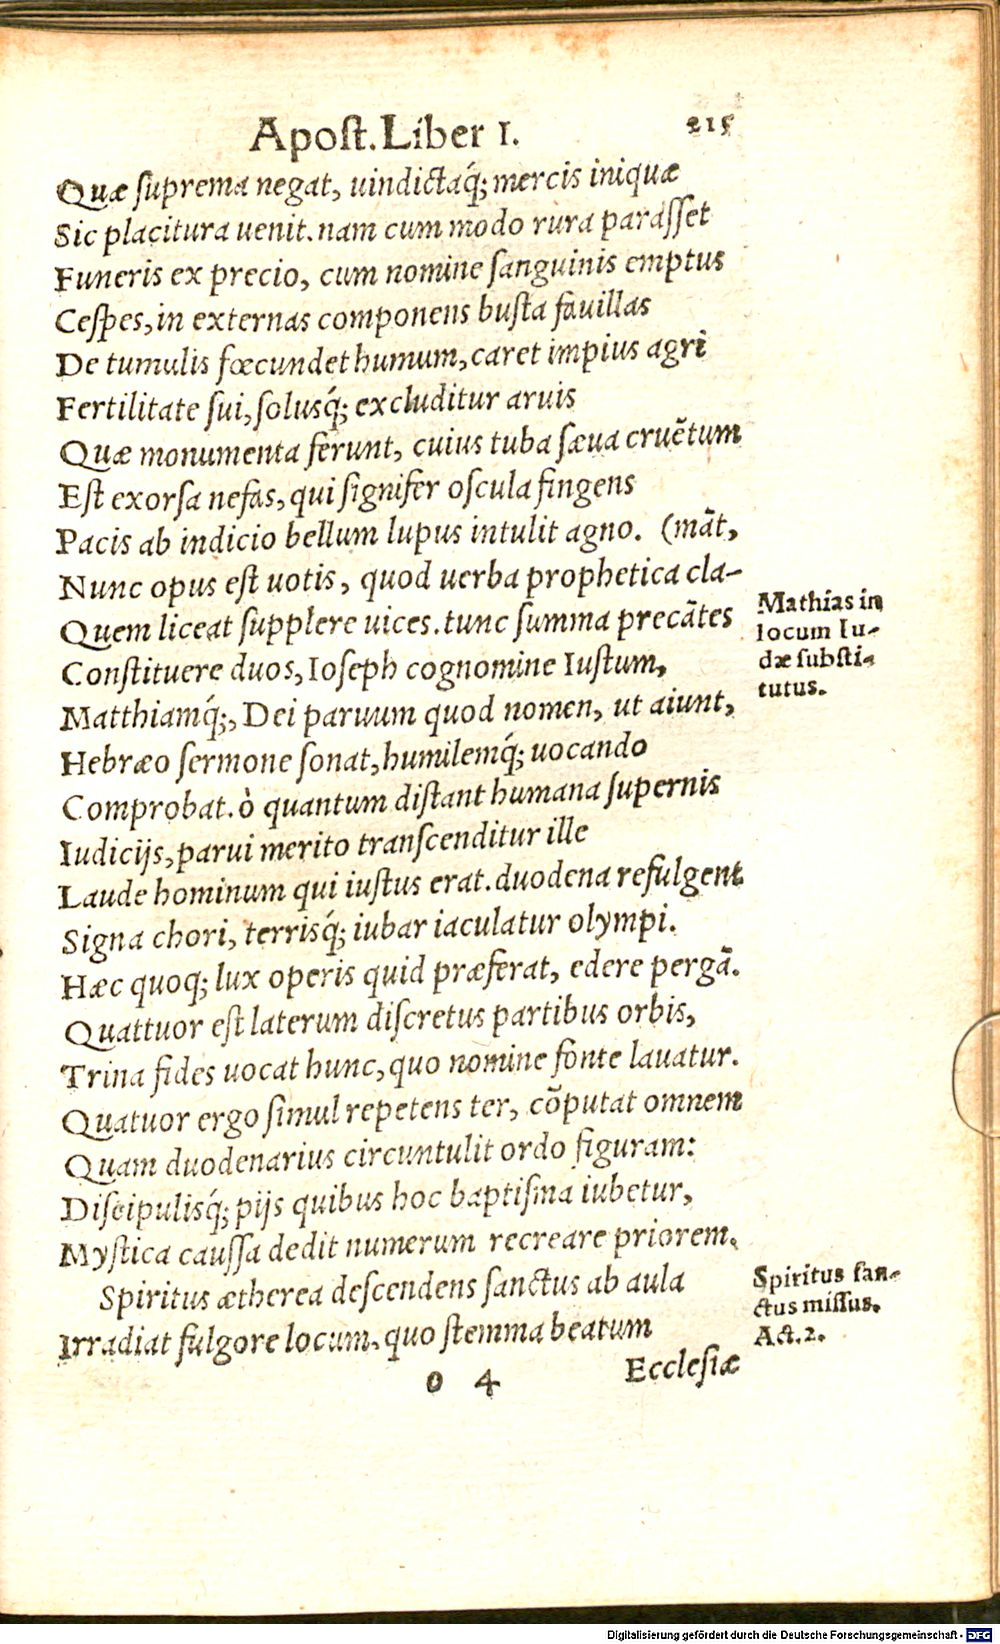 Apost. Liber I. 215
Quæ suprema negat, uindictaq́; mercis iniquæ
Sic placitura uenit. nam cum modo rura parasset
Funeris ex precio, cum nomine sanguinis emptus
Cespes, in externas componens busta fauillas
De tumulis fœcundet humum, caret impius agri
Fertilitate sui, solusq́; excluditur aruis
Quæ monumenta ferunt, cuius tuba sæua cruẽtum
Est exorsa nefas, qui signifer oscula fingens
Pacis ab indicio bellum lupus intulit agno. (mãt,
Nunc opus est uotis, quod uerba prophetica cla-
Quem liceat supplere uices. tunc summa precãtes
Constituere duos, Ioseph cognomine Iustum,
Matthiamq́;, Dei paruum quod nomen, ut aiunt,
Hebræo sermone sonat, humilemq́; uocando
Comprobat. ò quantum distant humana supernis
Iudicijs, parui merito transcenditur ille
Laude hominum qui iustus erat. duodena refulgent
Signa chori, terrisq́; iubar iaculatur olympi.
Hæc quoq; lux operis quid præferat, edere pergã.
Quattuor est laterum discretus partibus orbis,
Trina fides uocat hunc, quo nomine fonte lauatur.
Quatuor ergo simul repetens ter, cõputat omnem
Quam duodenarius circuntulit ordo figuram:
Discipulisq́; pijs quibus hoc baptisma iubetur,
Mystica caussa dedit numerum recreare priorem.
Spiritus ætherea descendens sanctus ab aula
Irradiat fulgore locum, quo stemma beatum
o 4 Ecclesiæ
Mathias in
locum Iu-
dæ substi-
tutus.
Spiritus san-
ctus missus.
Act. 2.
Digitalisierung gefördert durch die Deutsche Forschungsgemeinschaft - DFG